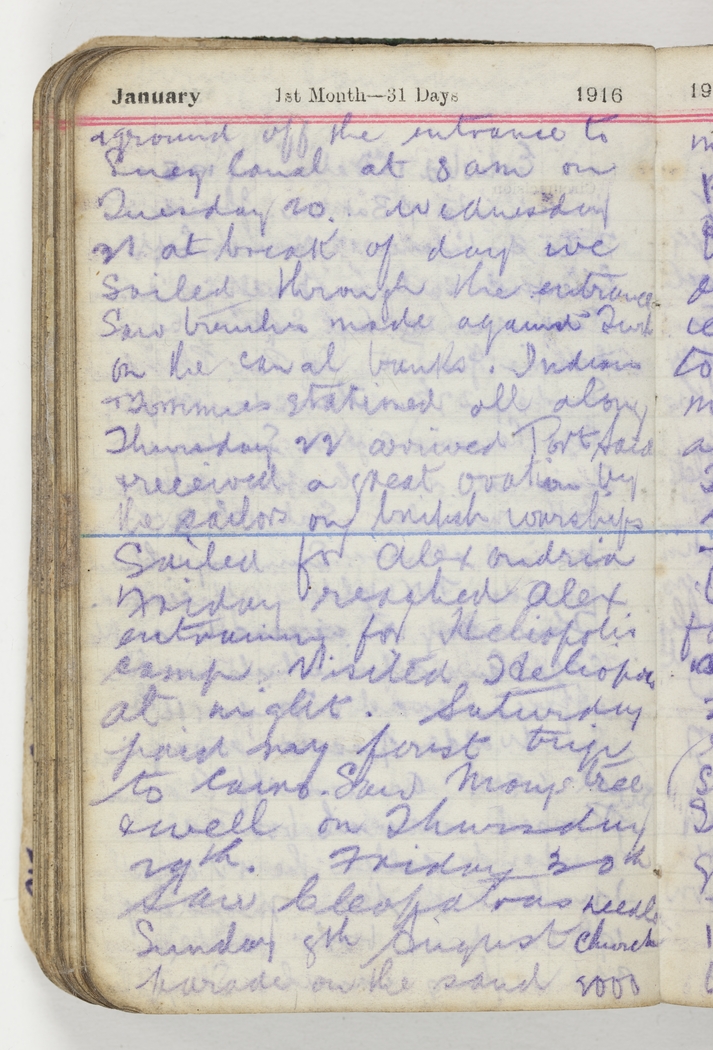 January 1st Month—31 Days 1916 19
aground off the entrance to
Suez Canal at 8 am on
Tuesday 20. Wednesday
21 at break of day we
Sailed through the entrance
Saw trenches made against Turk
on the canal banks. Indians
stationed all along
Thursday 22 arrived Port Said
received a great ovation by
the sailors on british warships
Sailed for Alexandria
Friday reached Alex
entraining for Heliopolis
camp. Visited Heliopo
at night. Saturday
paid my first trip
to Cairo. Saw tree
& well on Thursday
29th. Friday 30th
Saw Cleopatras needle
Sunday 8th August Church
parade on the sand